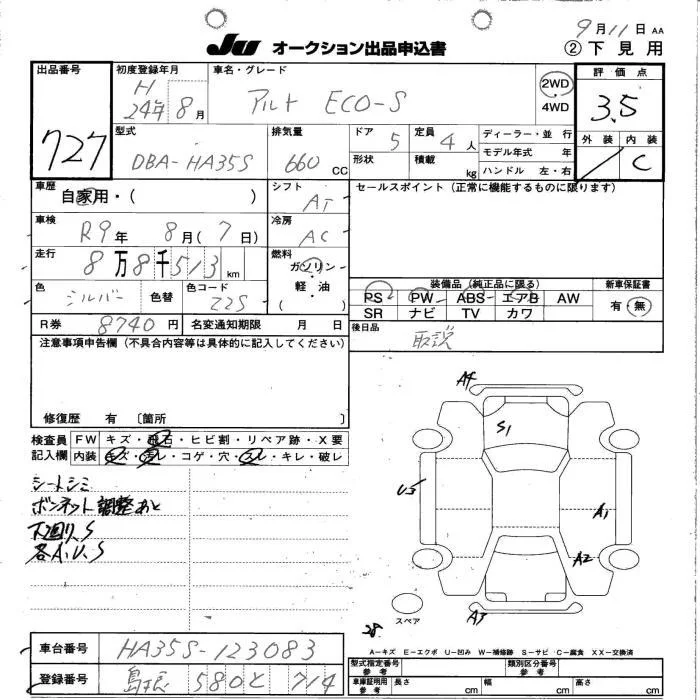 9月11日 AA
JU オークション出品申込書
② 下見用
出品番号
727
初度登録年月
H
24年 8月
車名・グレード
アルト ECO-S
2WD
・
4WD
評価点
3.5
外装 内装
C
型式
DBA-HA35S
排気量
660 CC
ドア 5
定員 4 人
形状
積載 kg
ディーラー・並 行
モデル年式 年
ハンドル 左・右
車歴
自家用・( )
シフト
AT
セールスポイント(正常に機能するものに限ります)
車検
R9年 8月(7日)
冷房
AC
走行
8万8千513km
燃料
ガソリン・
軽・油
( )
色
シルバー
色替
色コード
Z2S
装備品(純正品に限る)
PS PW ABS エアB AW
SR ナビ TV カワ
新車保証書
有・無
R券 8740円
名変通知期限 月 日
後日品
取説
注意事項申告欄(不具合内容等は具体的に記入してください)
修復歴 有 〔箇所 〕
検査員
記入欄
FW キズ・飛石・ヒビ割・リペア跡・X要
内装 キズ・汚レ・コゲ・穴・スレ・キレ・破レ
シートシミ
ボンネット調整あと
下廻り、S
各A、U、S
A4
S1
U3
A1
A2
A3
スペア
28.
A-キズ E-エクボ U-凹み W-補修跡 S-サビ C-腐食 XX-交換済
車台番号 HA35S-123083
登録番号 580 と 714
型式指定番号
類別区分番号
車庫証明用 長さ cm 幅 cm 高さ cm